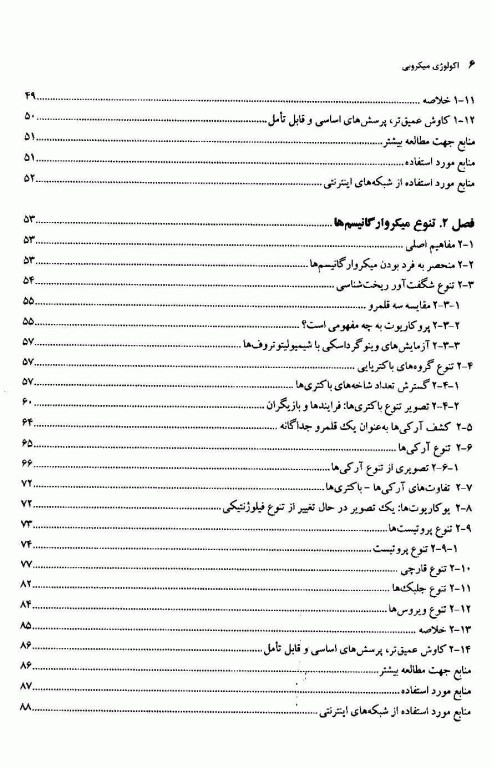 ۶ اکولوژی میکروبی
۱-۱۱ خلاصه ........ ۴۹
۱-۱۲ کاوش عمیق‌تر، پرسش‌های اساسی و قابل تأمل ........ ۵۰
منابع جهت مطالعه بیشتر ........ ۵۱
منابع مورد استفاده ........ ۵۱
منابع مورد استفاده از شبکه‌های اینترنتی ........ ۵۲
فصل ۲. تنوع میکروارگانیسم‌ها ........ ۵۳
۲-۱ مفاهیم اصلی ........ ۵۳
۲-۲ منحصر به فرد بودن میکروارگانیسم‌ها ........ ۵۳
۲-۳ تنوع شگفت‌آور ریخت‌شناسی ........ ۵۴
۲-۳-۱ مقایسه سه قلمرو ........ ۵۵
۲-۳-۲ پروکاریوت به چه مفهومی است؟ ........ ۵۵
۲-۳-۳ آزمایش‌های وینوگرداسکی با شیمیولیتوتروف‌ها ........ ۵۷
۲-۴ تنوع گروه‌های باکتریایی ........ ۵۷
۲-۴-۱ گسترش تعداد شاخه‌های باکتری‌ها ........ ۵۷
۲-۴-۲ تصویر تنوع باکتری‌ها: فرایندها و بازیگران ........ ۶۰
۲-۵ کشف آرکی‌ها به‌عنوان یک قلمرو جداگانه ........ ۶۴
۲-۶ تنوع آرکی‌ها ........ ۶۵
۲-۶-۱ تصویری از تنوع آرکی‌ها ........ ۶۶
۲-۷ تفاوت‌های آرکی‌ها - باکتری‌ها ........ ۷۲
۲-۸ یوکاریوت‌ها: یک تصویر در حال تغییر از تنوع فیلوژنتیکی ........ ۷۲
۲-۹ تنوع پروتیست‌ها ........ ۷۳
۲-۹-۱ تنوع پروتیست ........ ۷۴
۲-۱۰ تنوع قارچی ........ ۷۷
۲-۱۱ تنوع جلبک‌ها ........ ۸۲
۲-۱۲ تنوع ویروس‌ها ........ ۸۴
۲-۱۳ خلاصه ........ ۸۵
۲-۱۴ کاوش عمیق‌تر، پرسش‌های اساسی و قابل تأمل ........ ۸۶
منابع جهت مطالعه بیشتر ........ ۸۶
منابع مورد استفاده ........ ۸۷
منابع مورد استفاده از شبکه‌های اینترنتی ........ ۸۸